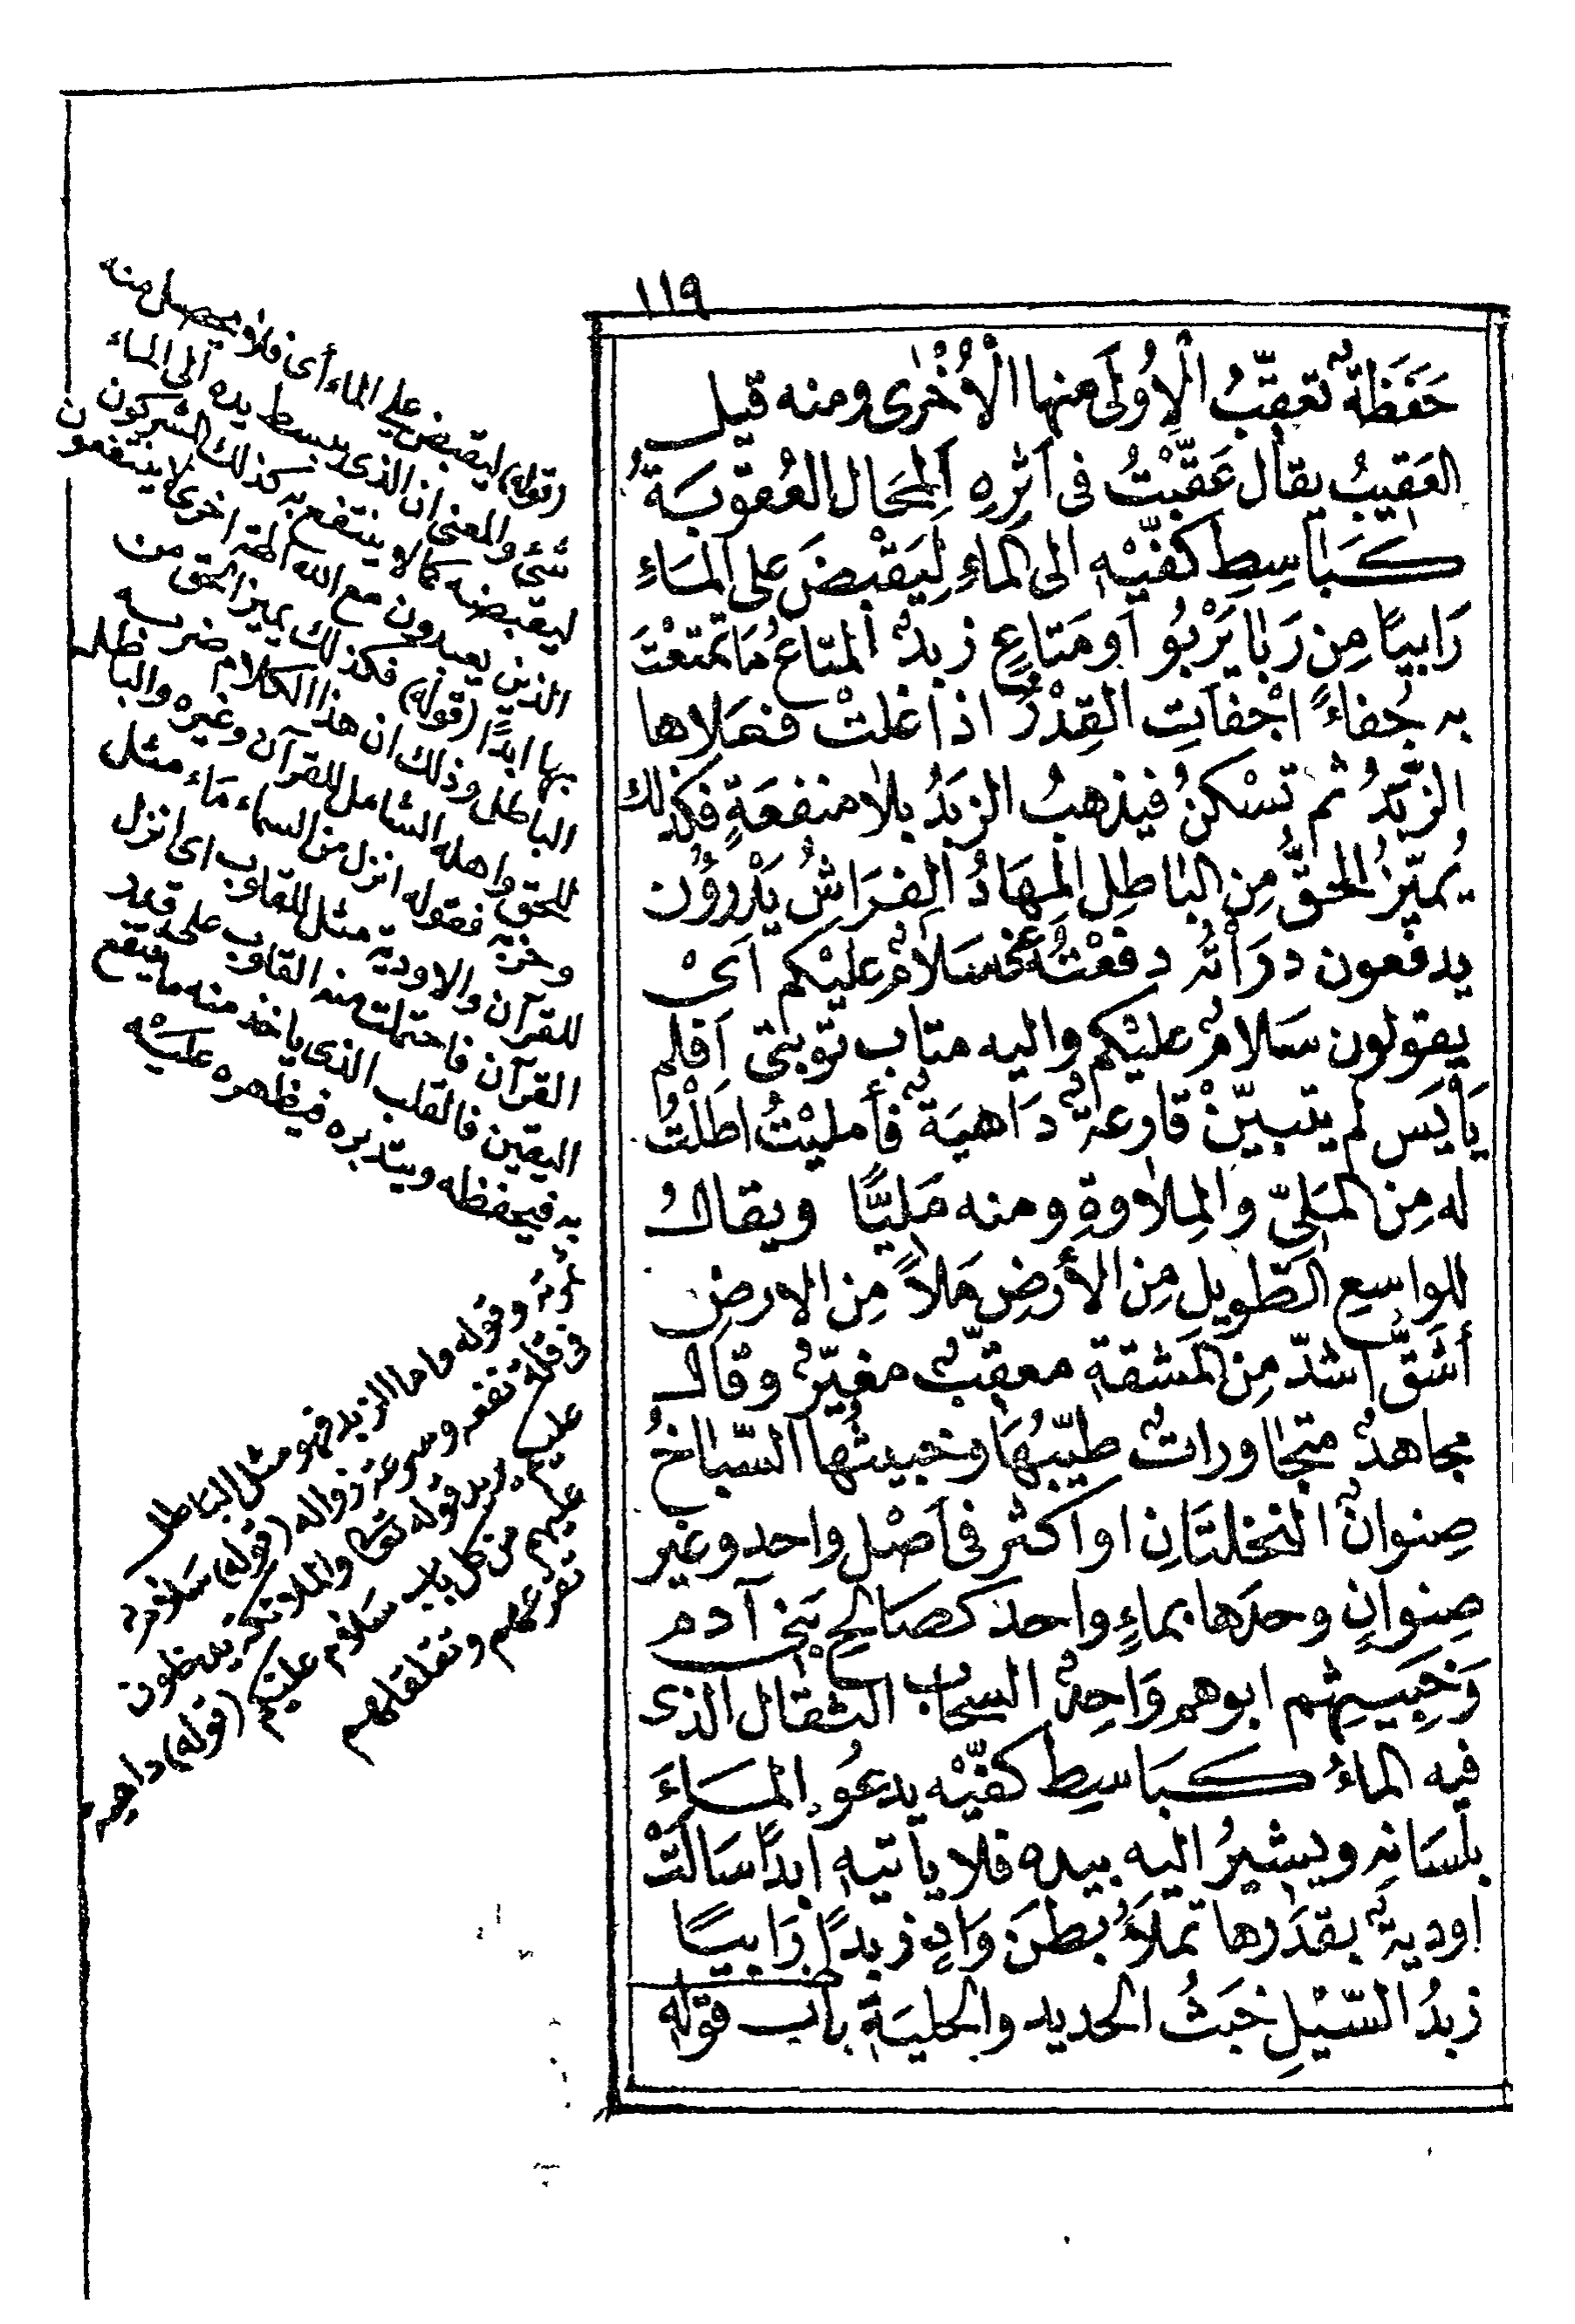 ١١٩
حَفَظَةٌ تعقّبُ الْاُولَى منها الْاُخْرٰى ومنه قيل
العَقِيبُ يقال عَقَّبْتُ فى اَثِرِهِ اَلِمحَال العُقوبَةُ
كَبَاسِطِ كفّيْهِ الى الماءِ لِيَقْبِضَ على المَاءِ
رَابِيًا مِن رَبا يَرْبُو اَو مَتَاعٍ زبدٌ المتاعُ مَا تمتّعْتَ
به جُفاءً اجْفَاَتِ القِدْرُ اذا غلتْ فعَلاها
الزّبَدُ ثم تسْكنُ فيذهبُ الزبَدُ بلا منفعَةٍ فكذلك
يُميّزُ الحَقُّ مِن الباطِلِ المِهَادُ الفرَاشُ يَدْرَؤُن
يدفعون درَأتُه دفعْتُهُ سَلامٌ عليْكم اَىْ
يقولون سَلامٌ عليْكم واليه متاب توبتى اَفلم
يَاْيَس لم يتبيّنْ قارعةٌ دَاهيَةٌ فأمليْتُ اطَلْتُ
له مِن المَلىّ والمِلاوةِ ومنه مَليًّا ويقال
للواسعِ الطّويلِ مِن الأرضِ مَلاً مِن الارضِ
أشَقُّ اشدّ مِن المَشقةِ معقِبٌ مغيّرٌ وقال
مجاهدٌ متجاوراتٌ طيّبُهَا وخبيثُها السّباخُ
صِنوانٌ النخلتَانِ او اكثر فى اَصْلٍ واحد وغير
صِنوانٍ وحدَها بماءٍ واحد كصَالحِ بَنى آدم
وَخَبِيثِهِم ابوهم وَاحِدٌ السحَابَ الثقال الذى
فيه الماءُ كبَاسِطِ كفّيْه يدعُو المَاءَ
بلسَانه ويشيرُ اليه بيده فلا يأتيهِ ابدًا سَالَتْ
اوديةٌ بقدَرها تملَأُ بطنَ وَادٍ زبدًا رَابيًا
زبدُ السّيْلِ خبَثُ الحديد والحليَةِ باب قوله
(قوله) ليقبض على الماء أى فلا يحصل منه
شئ والمعنى ان الذى يبسط يده الى الماء
ليقبضه كما لا ينتفع به كذلك المشركون
الذين يعبدون مع الله الهة اخرى لا ينتفعون
بها ابدًا (قوله) فكذلك يميز الحق من
الباطل وذلك ان هذا الكلام ضربه
للحق واهله الشامل للقرآن وغيره والباطل
وحزبه فقوله انزل من السماء مَاء مثل
للقرآن والاودية مثل للقلوب اى انزل
القرآن فاحتملت منه القلوب على قدر
اليقين فالقلب الذى ياخذ منه ما ينتفع
به فيحفظه ويتدبره فيظهره عليْه
ثمرته وقوله واما الزبد فهو مثل الباطل
فى قلة نفعه وسرعة زواله (قوله) سَلام
عليكم يريد قوله تعالى والملائكة يدخلون
عليهم من كل باب سَلام عليْكم (قوله) داهية
تقرعهم وتقلقلهم